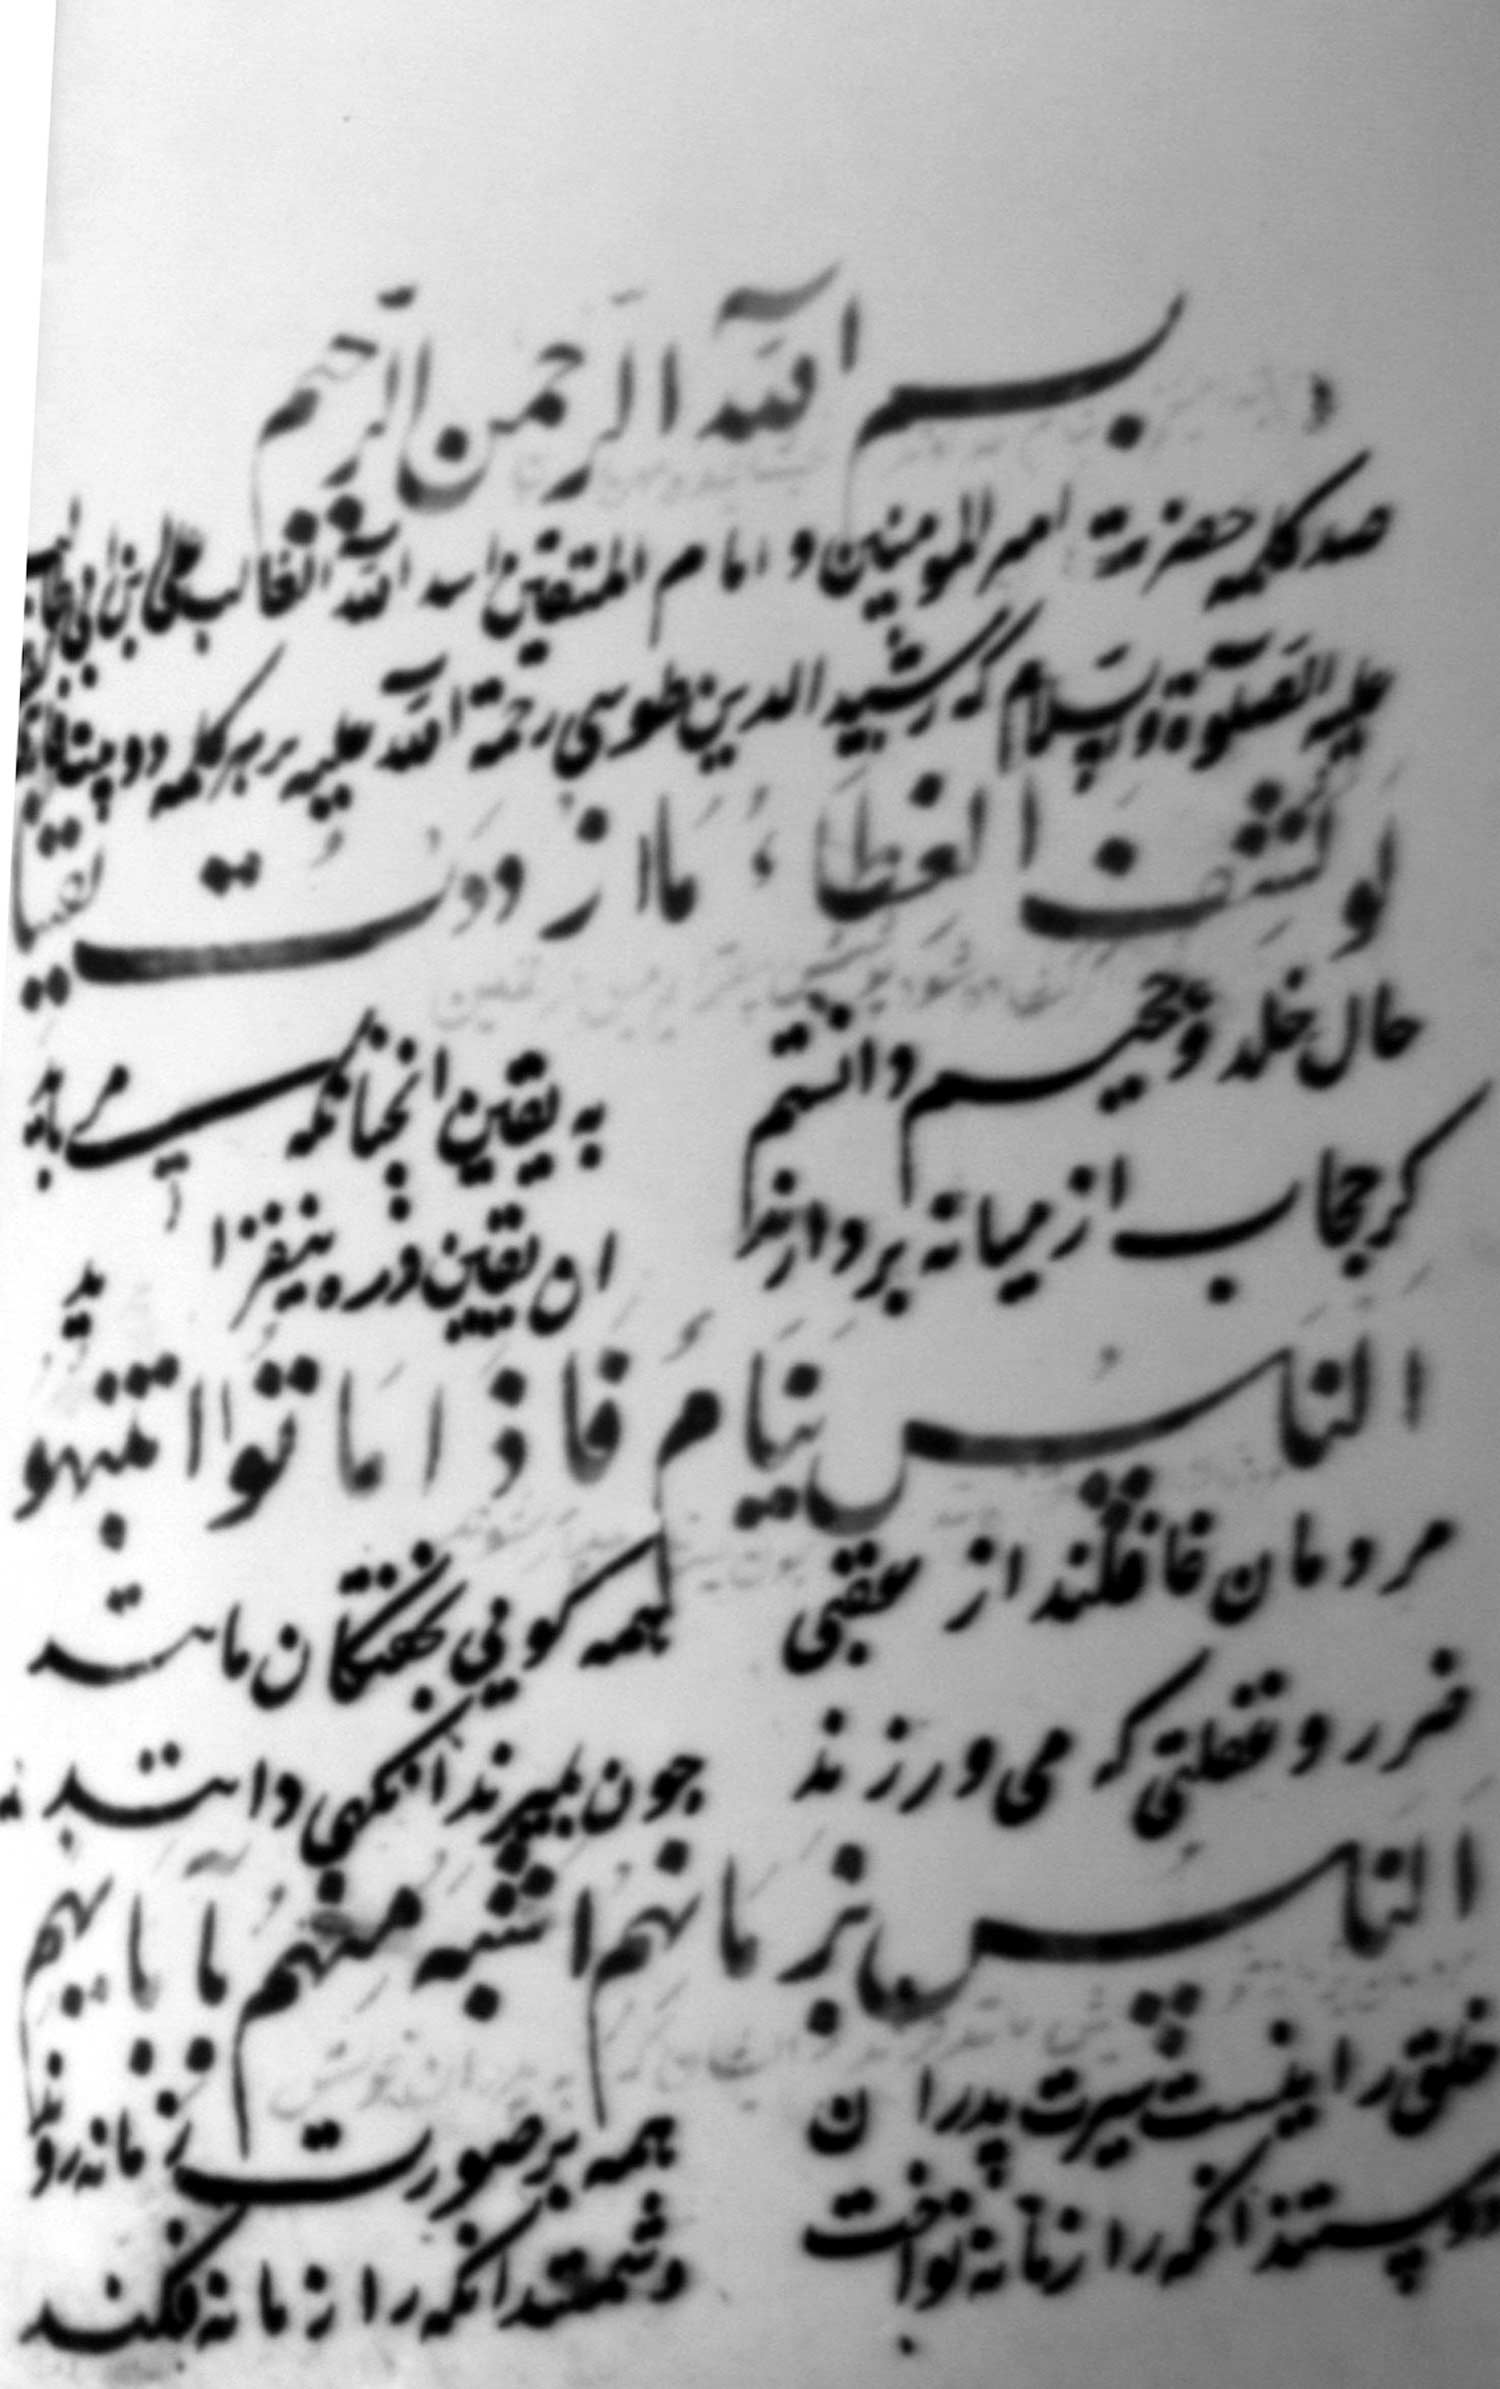 بسم الله الرحمن الرحيم
صد كلمه حضرة امير المومنين و امام المتقين اسد الله الغالب على بن ابى طالب
عليه الصلوة و السلام كه رشيد الدين طوسى رحمة الله عليه بر هر كلمه دو بيت
لو كشف الغطاء ما ازددت يقينا
حال خلد و جحيم دانستم به يقين انجنانكه مى بايد
كر حجاب از ميانه بردارند ان يقين ذره نيفزايد
الناس نيام فاذا ماتوا انتبهو
مردمان غافلند از عقبى همه كويى بخفتكان مانند
ضرر غفلتى كه مى ورزند جون بميرند انكهى دانند
الناس بزمانهم اشبه منهم بآبايهم
خلق را نيست سيرت پدران همه بر صورت زمانه روند
دوستند انكه را زمانه نواخت دشمنند انكه را زمانه فكند